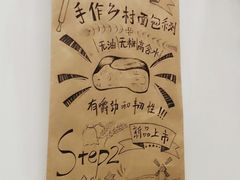 手作乡村面包系列
无油无糖高含水
有嚼劲和韧性!!!
新品上市
Step2